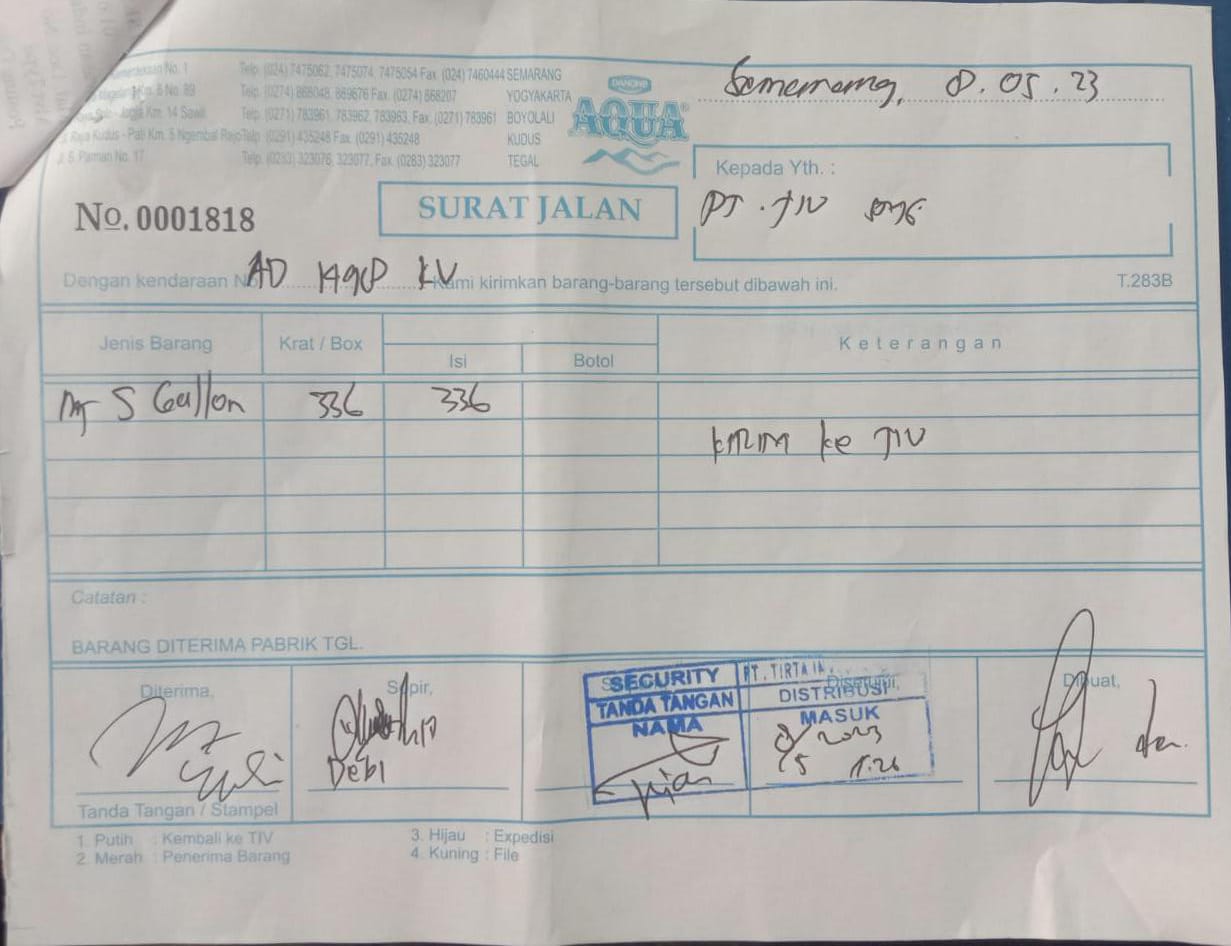 No. 1 Telp. (024) 7475062, 7475074, 7475054 Fax. (024) 7460444 SEMARANG
Km. 6 No. 89 Telp. (0274) 868048, 869676 Fax. (0274) 868207 YOGYAKARTA
Km. 14 Sawit Telp. (0271) 783961, 783962, 783963, Fax. (0271) 783961 BOYOLALI
Kudus - Pati Km. 5 Ngembal Rejo Telp. (0291) 435248 Fax. (0291) 435248 KUDUS
S. Parman No. 17 Telp. (0283) 323076, 323077, Fax. (0283) 323077 TEGAL
DANONE
AQUA
8.05.23
Kepada Yth. :
PT. TIV
No. 0001818
SURAT JALAN
Dengan kendaraan No AD KV Kami kirimkan barang-barang tersebut dibawah ini.
T.283B
Jenis Barang Krat / Box Isi Botol Keterangan
5 Gallon 336 336
ke TIV
Catatan :
BARANG DITERIMA PABRIK TGL.
Diterima, Sopir, Disetujui, Dibuat,
SECURITY
TANDA TANGAN
NAMA
PT. TIRTA
DISTRIBUSI
MASUK
2023
Debi
Tanda Tangan / Stampel
1. Putih : Kembali ke TIV
2. Merah : Penerima Barang
3. Hijau : Expedisi
4. Kuning : File